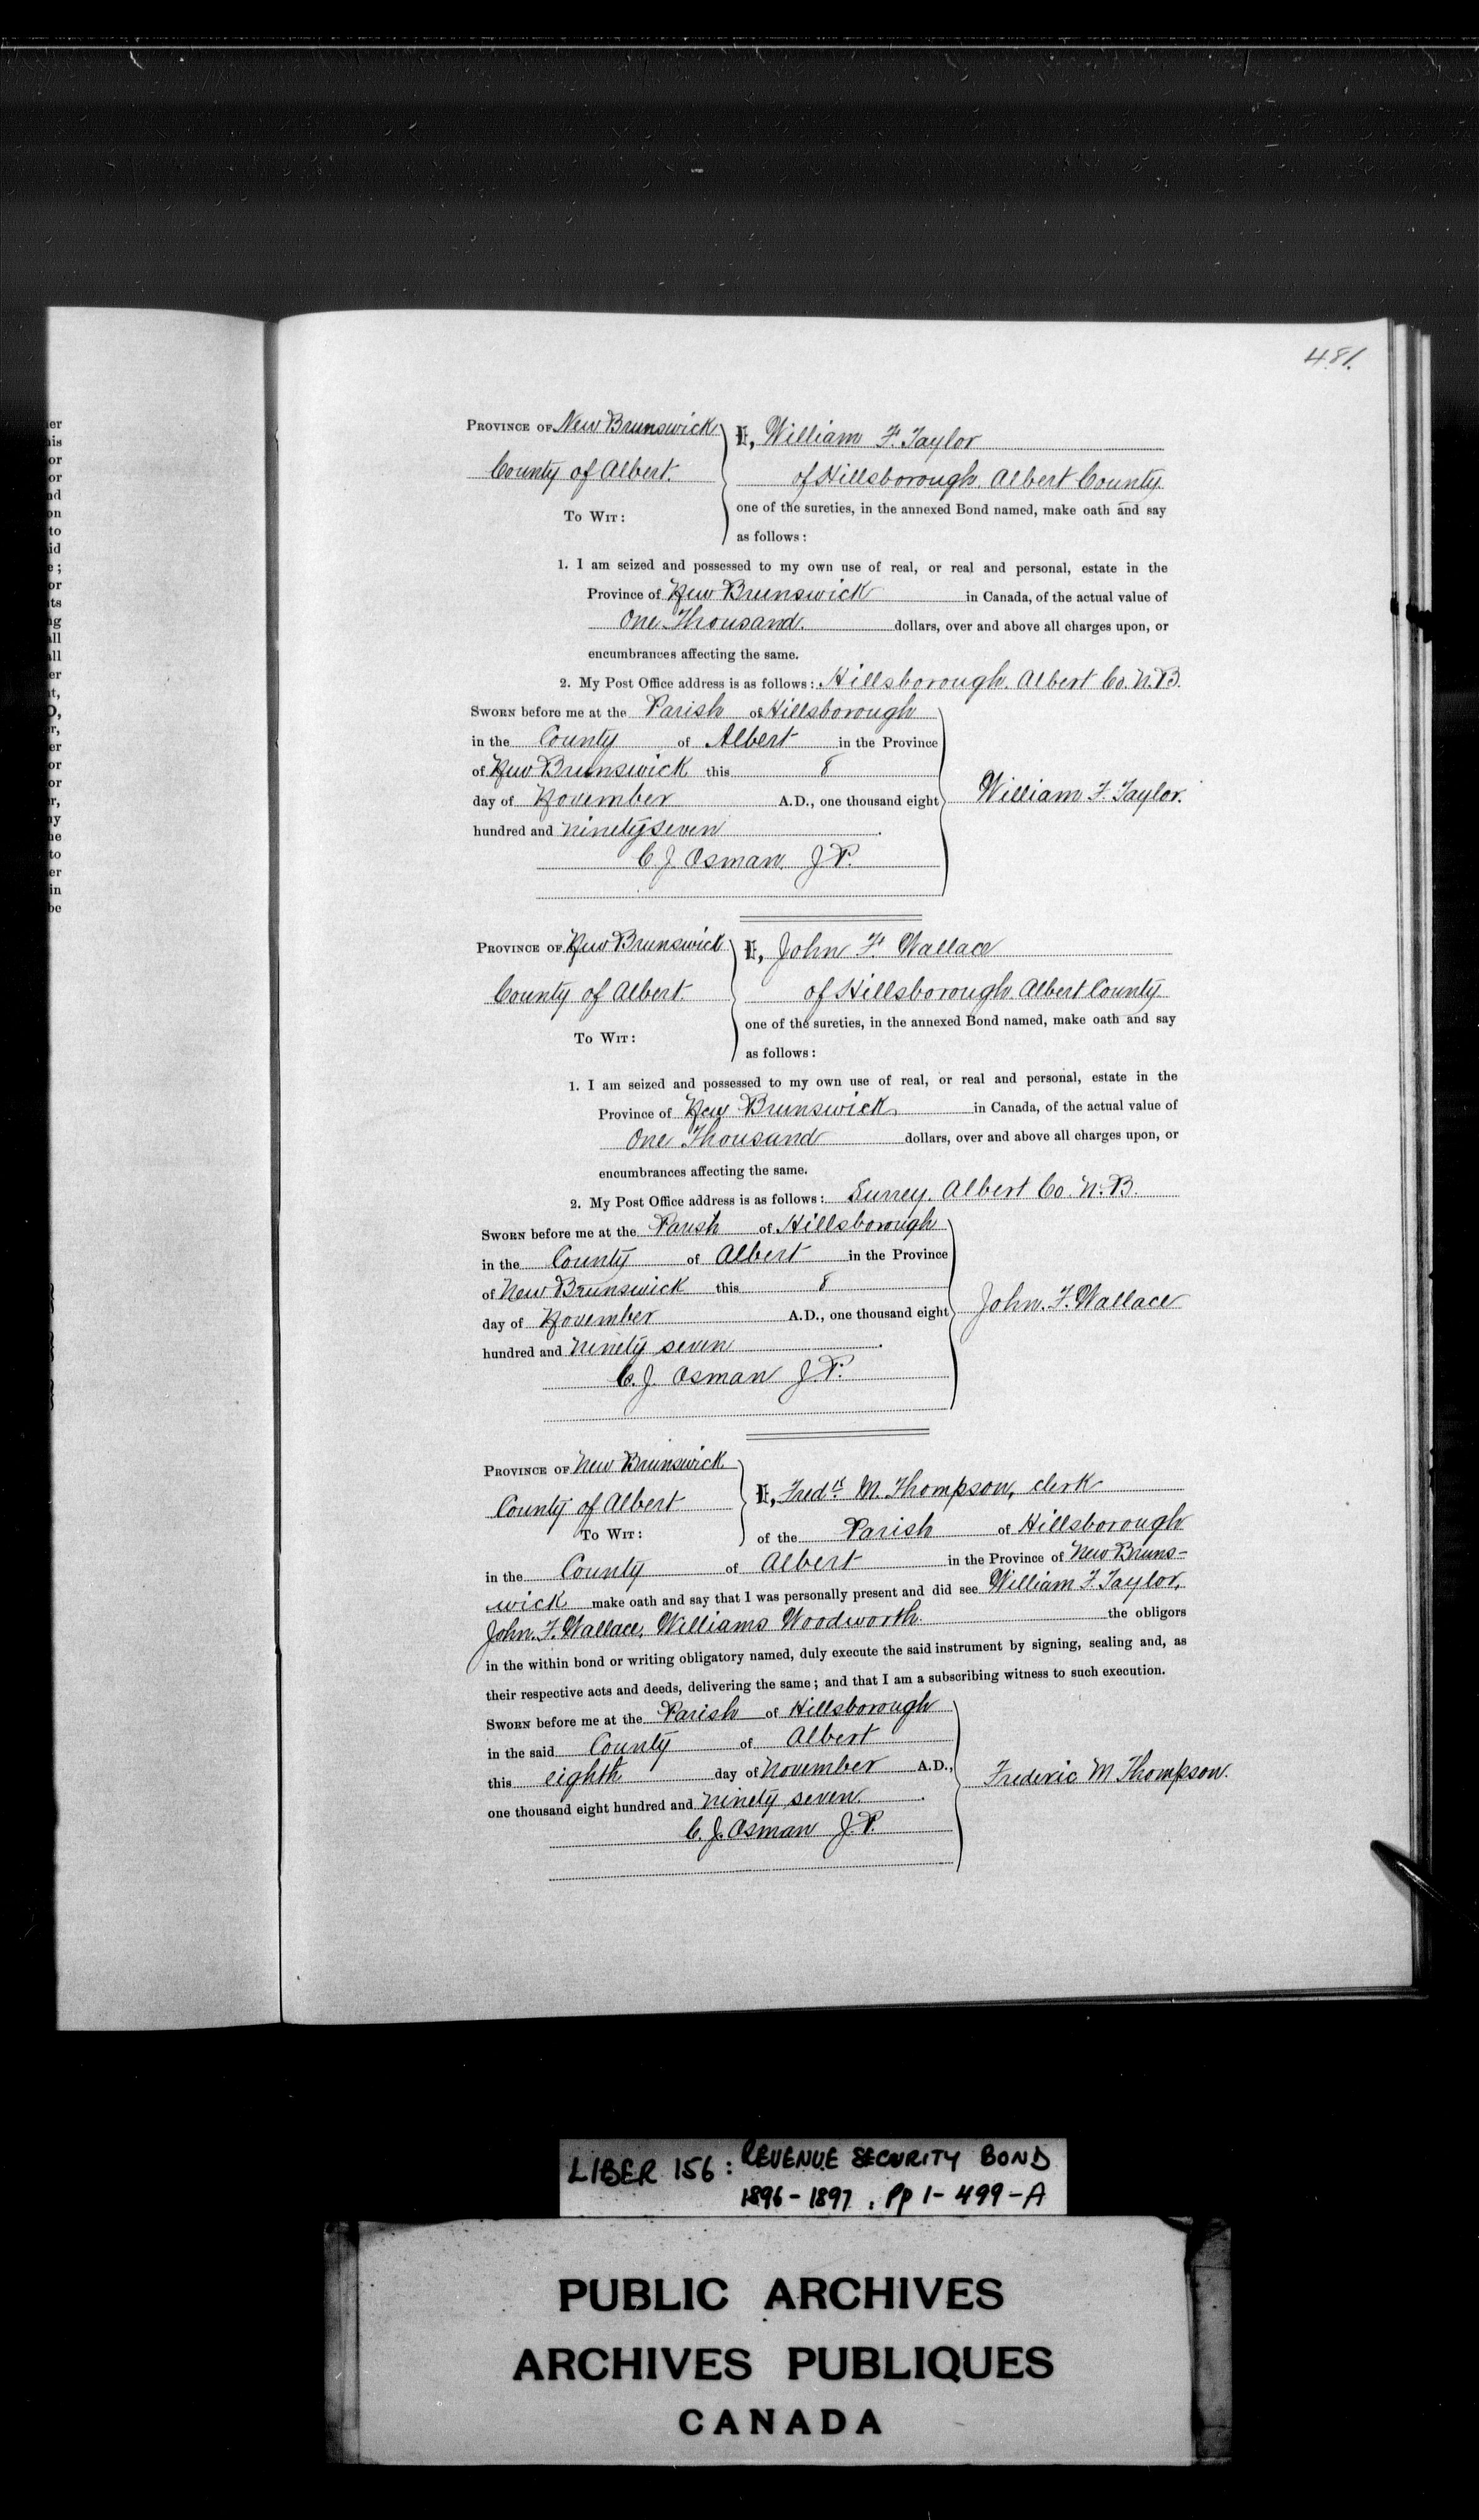 481.
Province of New Brunswick
County of Albert.
To Wit:
I, William F. Taylor
of Hillsborough Albert County
one of the sureties, in the annexed Bond named, make oath and say
as follows:
1. I am seized and possessed to my own use of real, or real and personal, estate in the
Province of New Brunswick in Canada, of the actual value of
One Thousand dollars, over and above all charges upon, or
encumbrances affecting the same.
2. My Post Office address is as follows: Hillsborough. Albert Co. N.B.
Sworn before me at the Parish of Hillsborough
in the County of Albert in the Province
of New Brunswick this 8
day of November A.D., one thousand eight
hundred and ninety seven.
C. J. Osman, J.P.
William F. Taylor.
Province of New Brunswick
County of Albert.
To Wit:
I, John F. Wallace
of Hillsborough Albert County
one of the sureties, in the annexed Bond named, make oath and say
as follows:
1. I am seized and possessed to my own use of real, or real and personal, estate in the
Province of New Brunswick in Canada, of the actual value of
One Thousand dollars, over and above all charges upon, or
encumbrances affecting the same.
2. My Post Office address is as follows: Surrey. Albert Co. N.B.
Sworn before me at the Parish of Hillsborough
in the County of Albert in the Province
of New Brunswick this 8
day of November A.D., one thousand eight
hundred and ninety seven.
C. J. Osman J.P.
John. F. Wallace
Province of New Brunswick
County of Albert
To Wit:
I, Fredk M. Thompson, clerk
of the Parish of Hillsborough
in the County of Albert in the Province of New Bruns-
wick make oath and say that I was personally present and did see William F. Taylor,
John. F. Wallace, Williams Woodworth the obligors
in the within bond or writing obligatory named, duly execute the said instrument by signing, sealing and, as
their respective acts and deeds, delivering the same; and that I am a subscribing witness to such execution.
Sworn before me at the Parish of Hillsborough
in the said County of Albert
this eighth day of November A.D.,
one thousand eight hundred and ninety seven.
C. J. Osman J.P.
Frederic M Thompson.
LIBER 156: REVENUE SECURITY BOND
1896-1897, Pp 1-499-A
PUBLIC ARCHIVES
ARCHIVES PUBLIQUES
CANADA